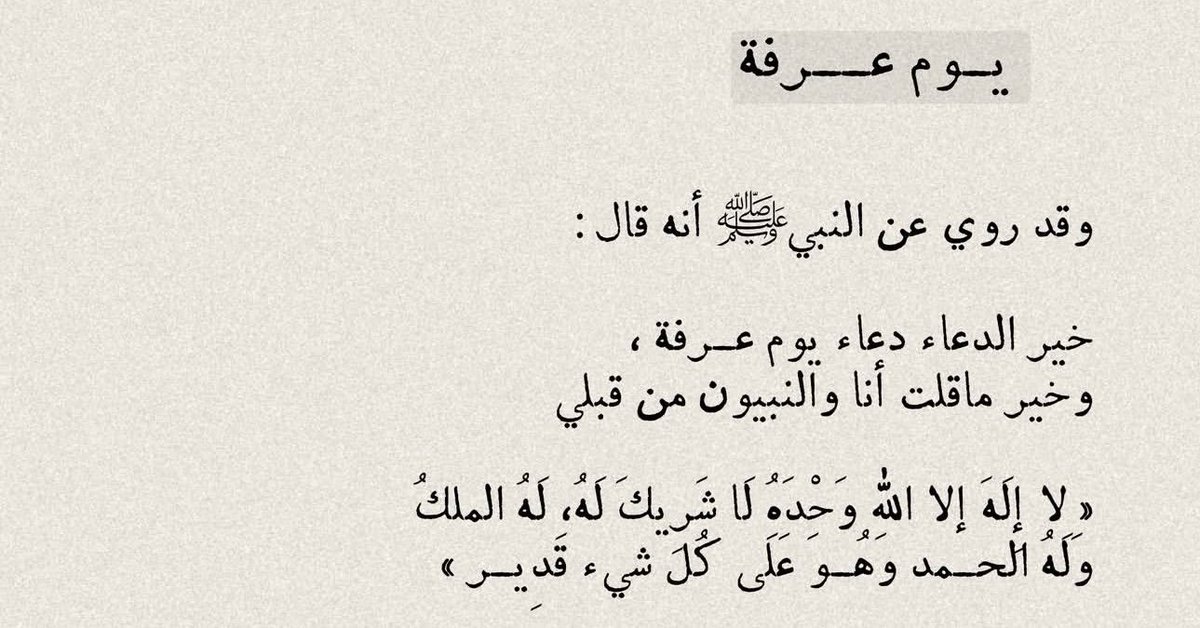 يــوم عــــرفة
وقد روي عن النبي ﷺ أنه قال :
خير الدعاء دعاء يوم عــرفة ،
وخير ماقلت أنا والنبيون من قبلي
« لا إِلَهَ إلا اللّٰه وَحْدَهُ لَا شَريكَ لَهُ، لَهُ الملكُ
وَلَهُ الحــمد وَهُــوَ عَلَى كُلَ شيء قَدِيــر »